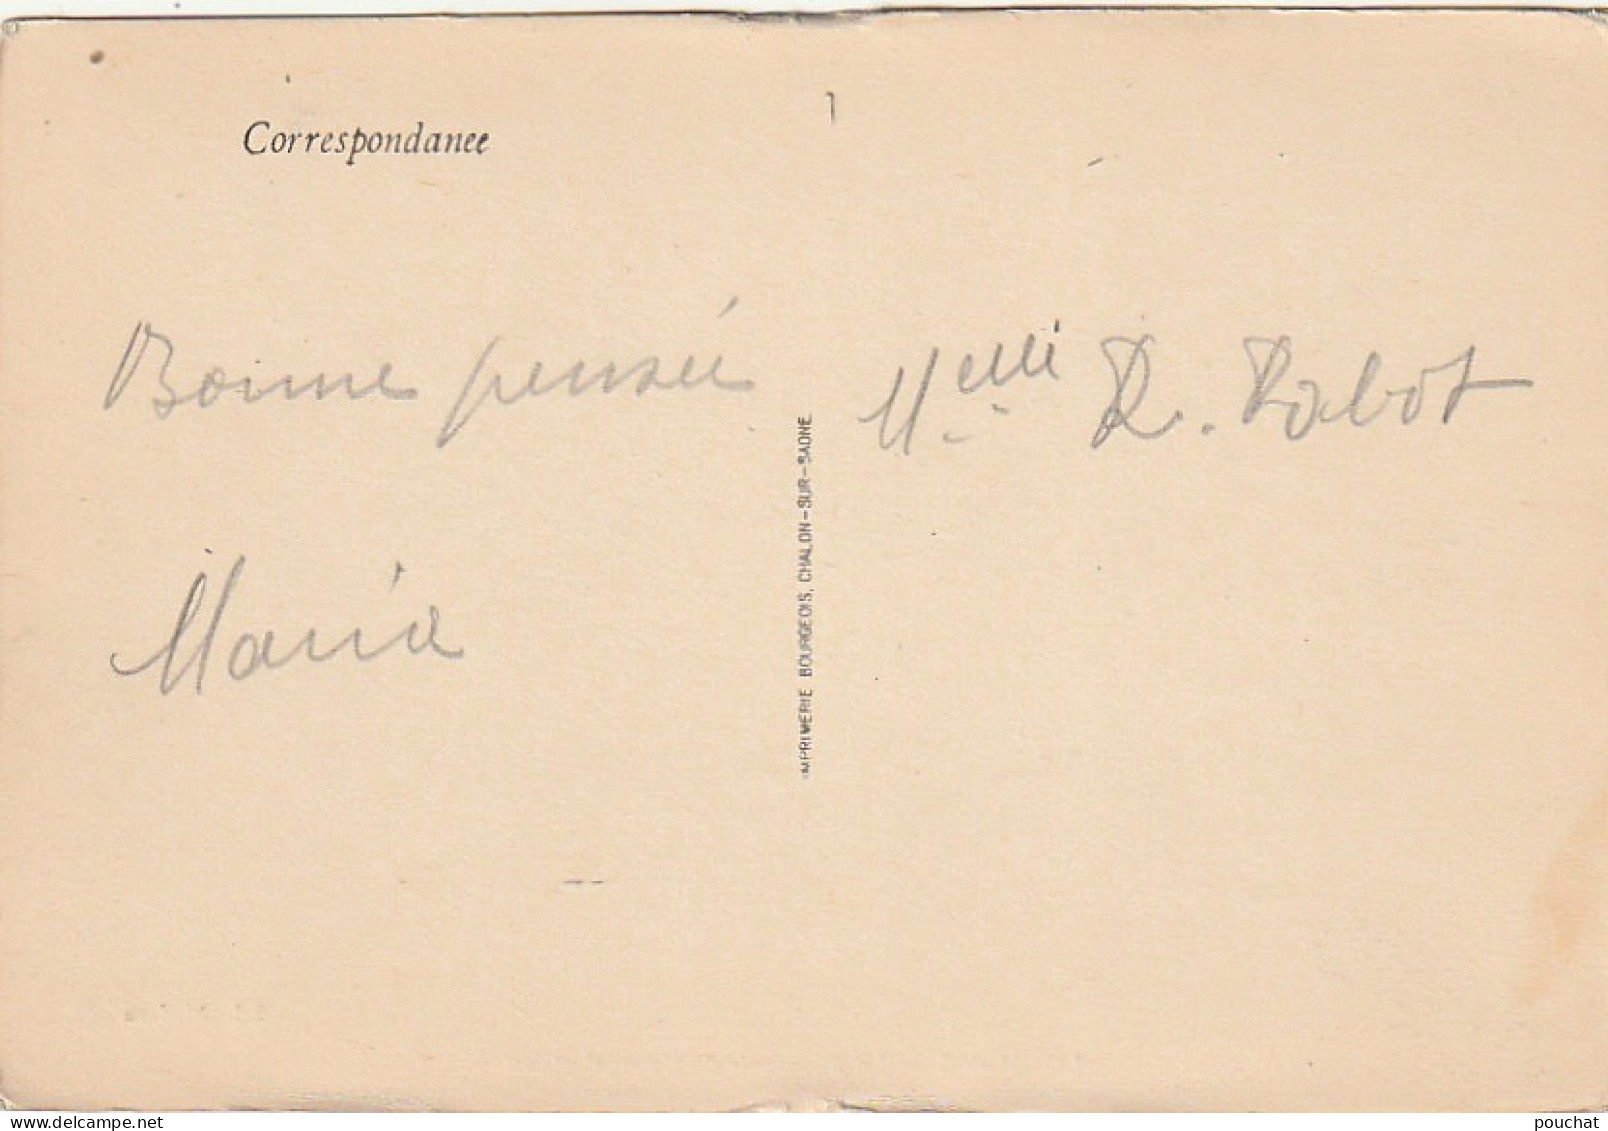 Correspondance
Bonne pensée
Maria
Melle R. Rabot
IMPRIMERIE BOURGEOIS, CHALON-SUR-SAONE
delcampe.net
pouchat